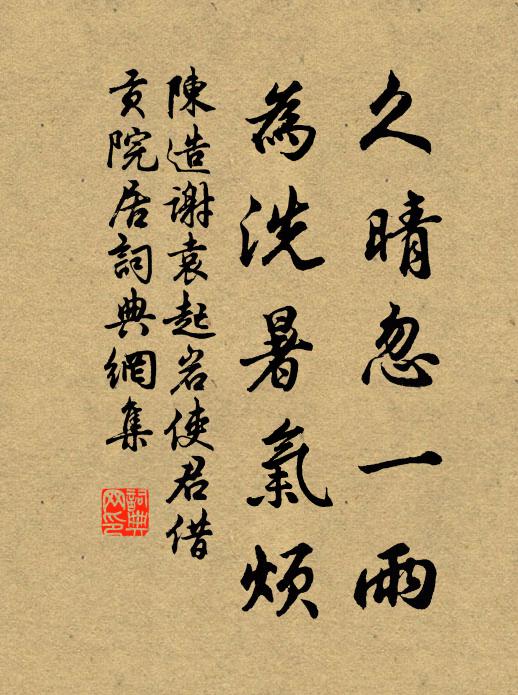 久晴忽一雨
為洗暑氣煩
陳造謝袁起岩使君借
貢院居詞典網集
詞典
网印